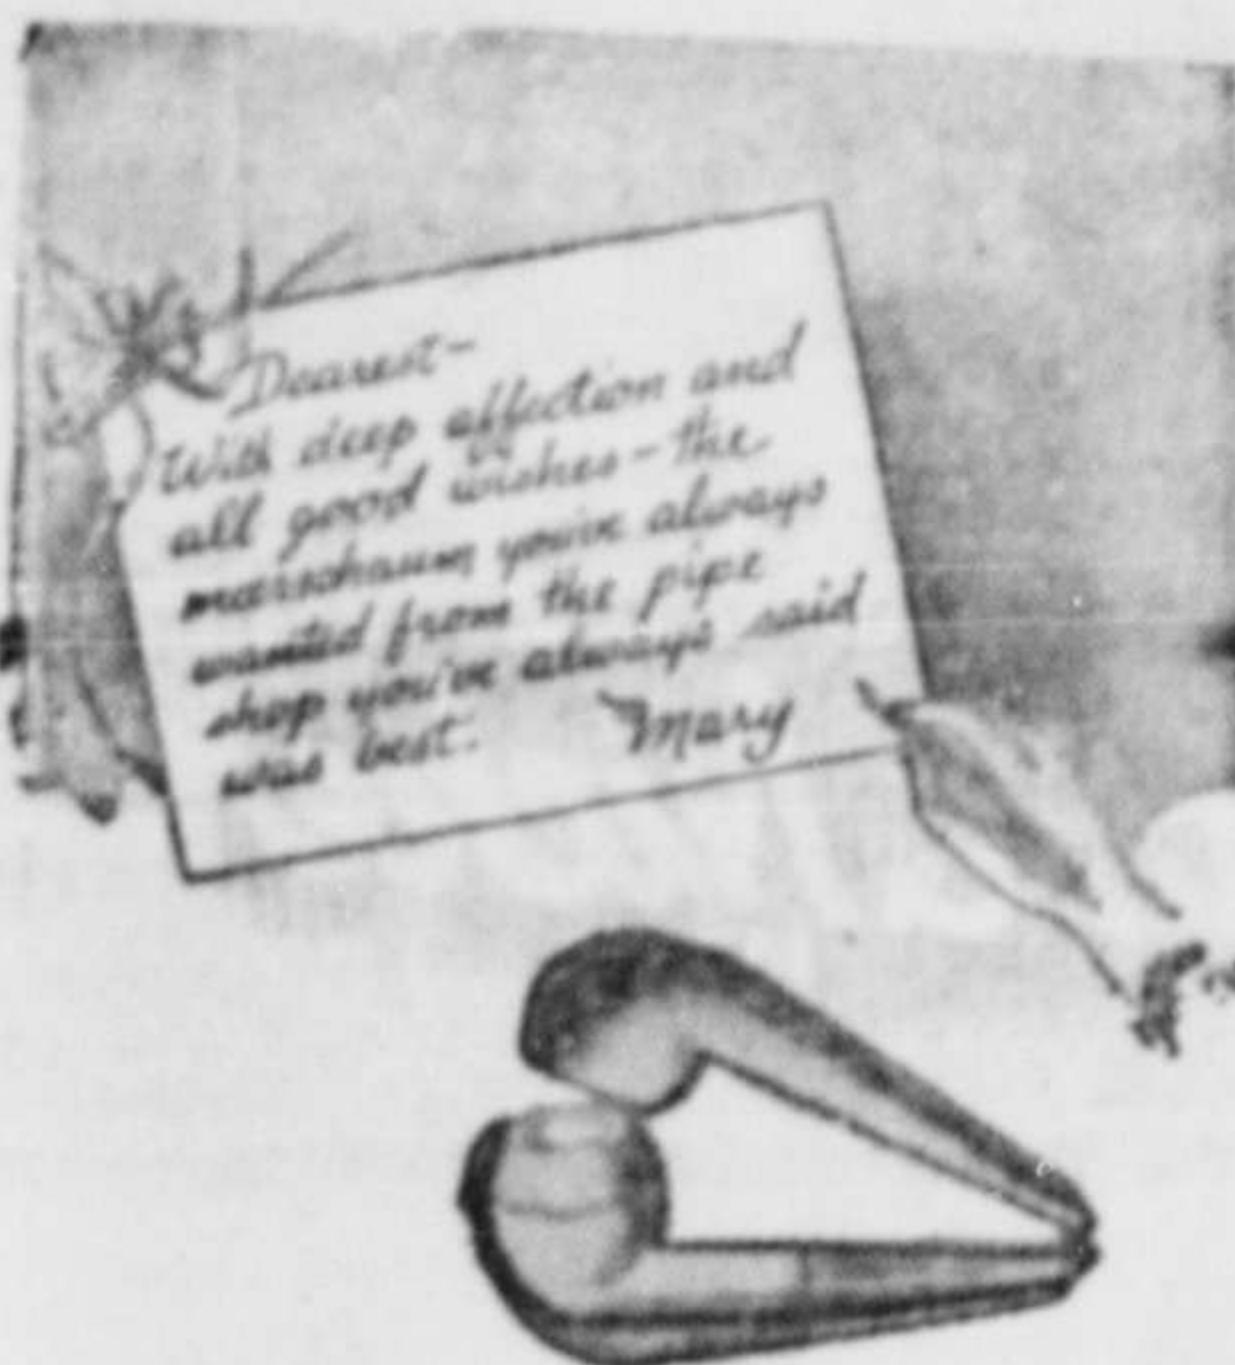 Dearest-
With deep affection and
all good wishes - the
meerschaum you've always
wanted from the pipe
shop you've always said
was best. Mary